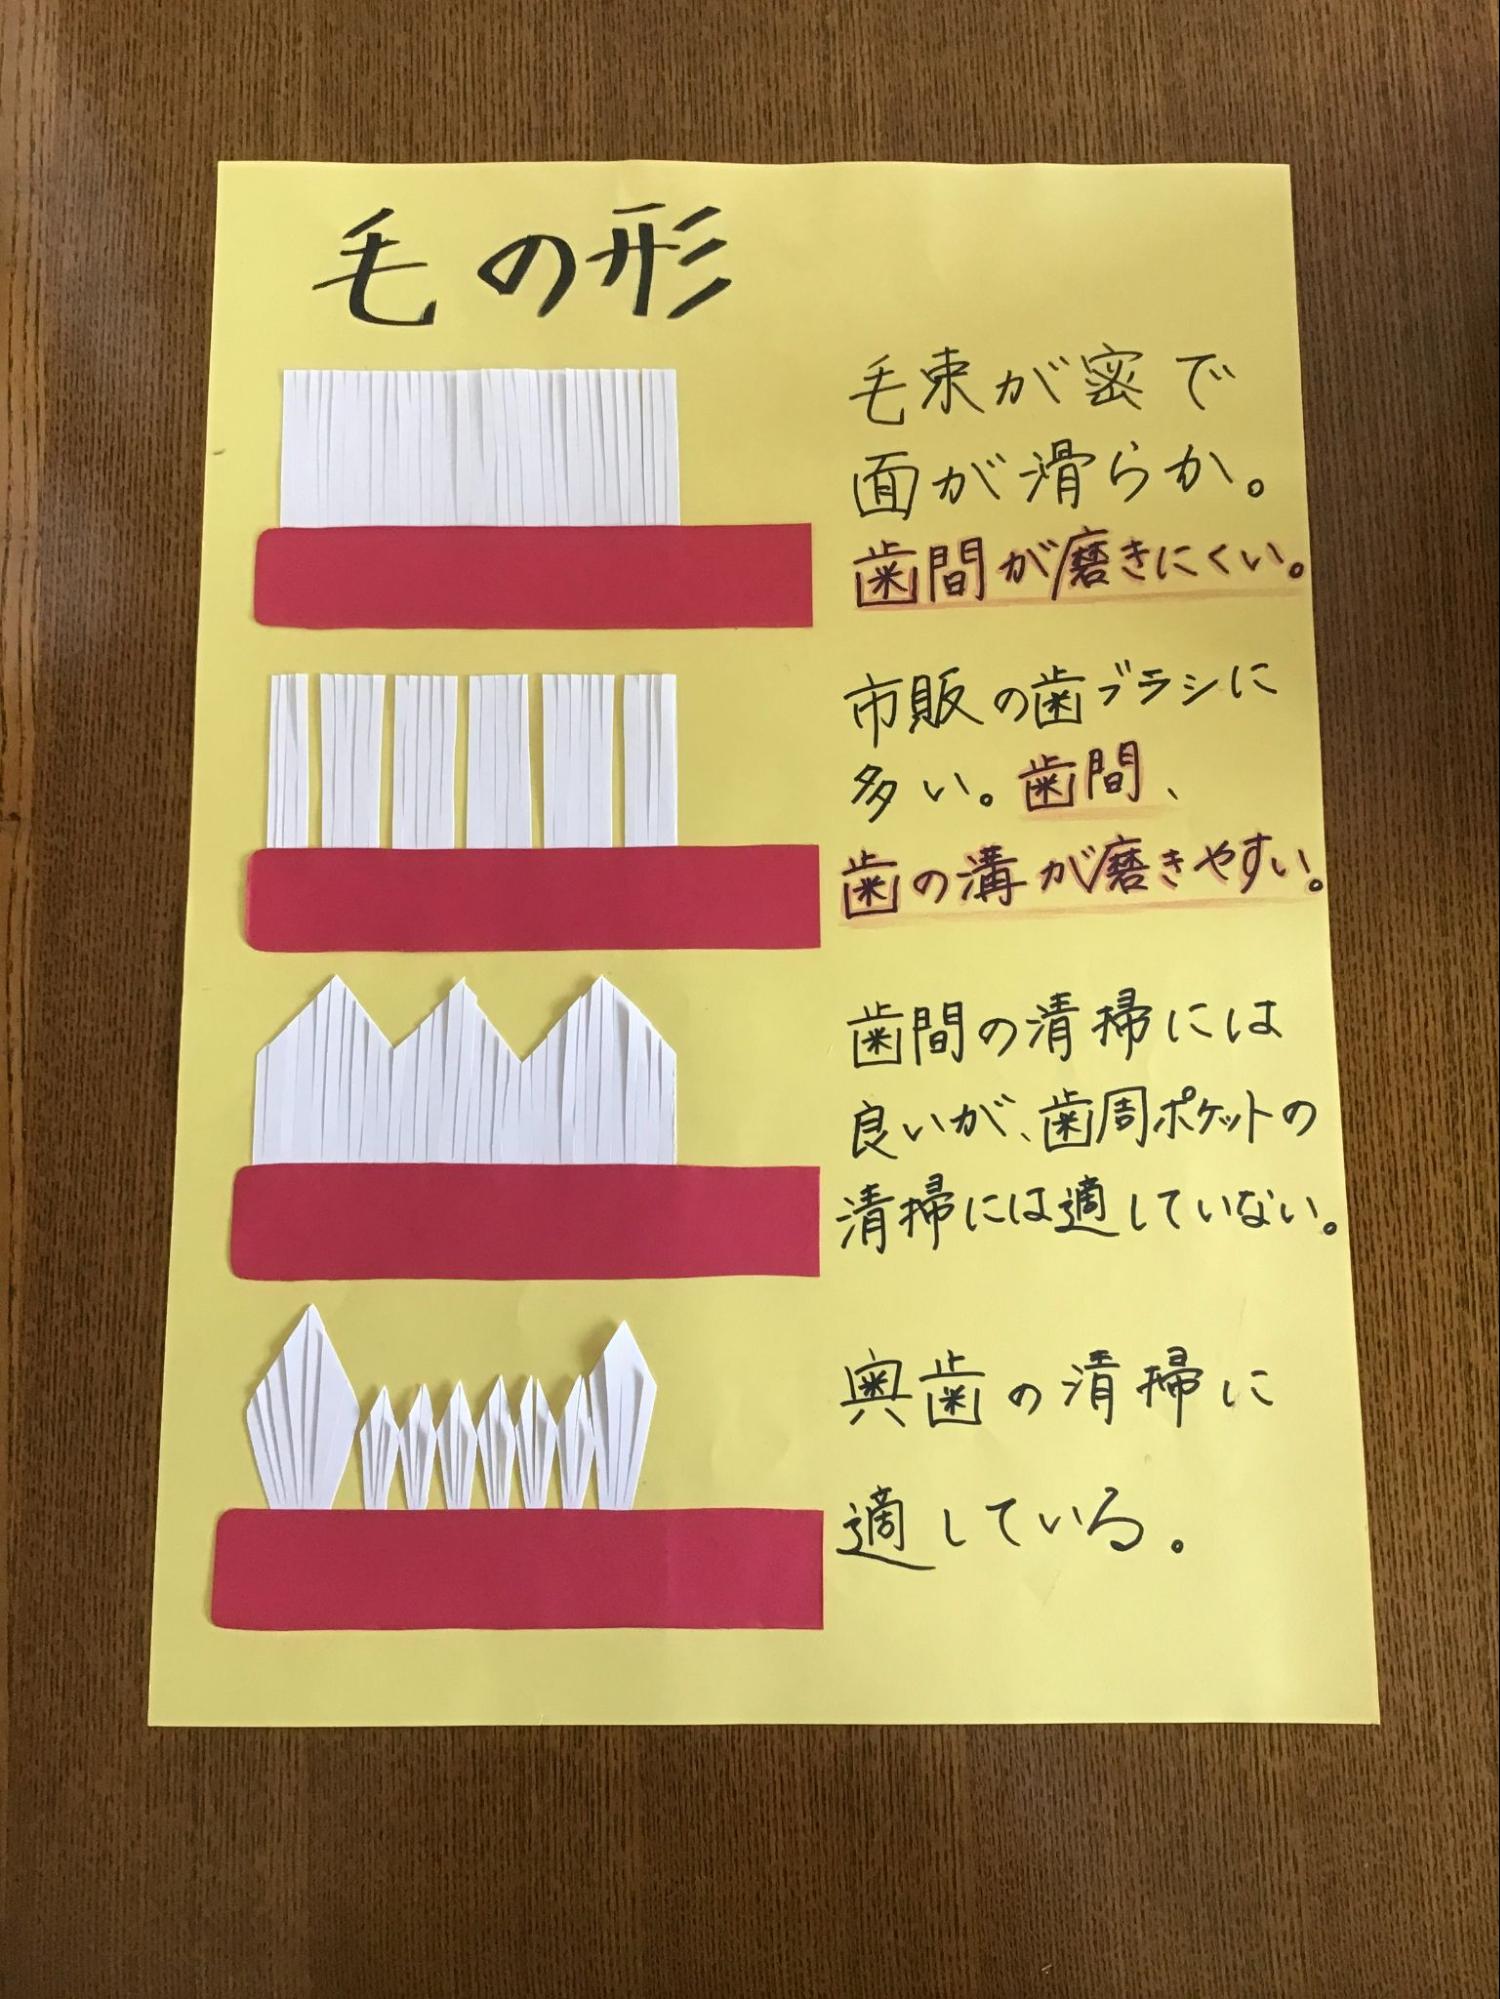 毛の形
毛束が密で
面が滑らか。
歯間が磨きにくい。
市販の歯ブラシに
多い。歯間、
歯の溝が磨きやすい。
歯間の清掃には
良いが、歯周ポケットの
清掃には適していない。
奥歯の清掃に
適している。